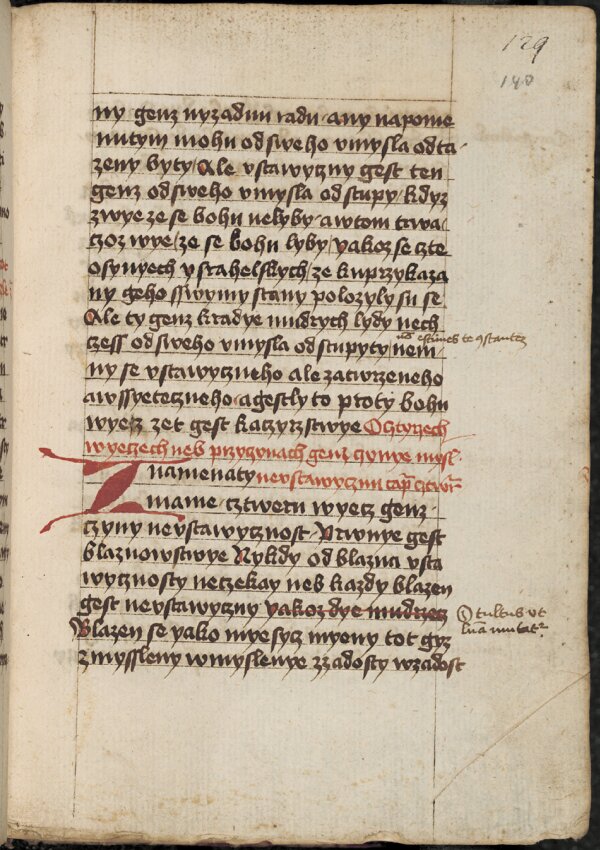 129
140
ny genz nyzadnu radu any napome
nutym mohu odsweho vmysla odta
zeny byty Ale vstawyczny gest ten
genz odsweho vmysla odstupy kdyz
zwye ze se bohu nelyby awtom trwa
czoz wye ze se bohu lyby yakoz se czte
osynyech ysrahelskych ze kuprzykaza
ny geho sswymy stany polozyly su se
Ale ty genz kradye mudrych lydy nech
czess odsweho vmysla odstupyty nem
ny se vstawyczneho ale zatwrzeneho
awssyeteczneho agestly to ptoty bohu
wyerz zet gest kaczyrzstwye Ocztyrzech
wyeczech neb przyczynach genz czynye mysl
Znamenaty nevstawycznu cap czwr
mame cztweru wyecz genz
czyny nevstawycznost Prwnye gest
blaznowstwye Nykdy od blazna vsta
wycznosty neczekay neb kazdy blazen
gest nevstawyczny yakoz dye mudrzecz
Blazen se yako myesycz myeny tot gyz
zmyssleny wmyslenye zzadosty wzadost
Stultus vt
luna mutat